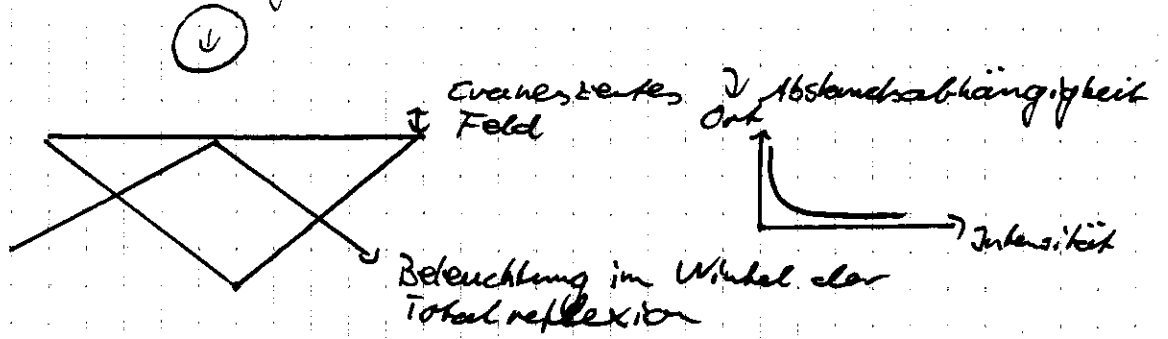 Evaneszentes
Feld
Abstandsabhängigkeit
Ort
Intensität
Beleuchtung im Winkel der
Totalreflexion